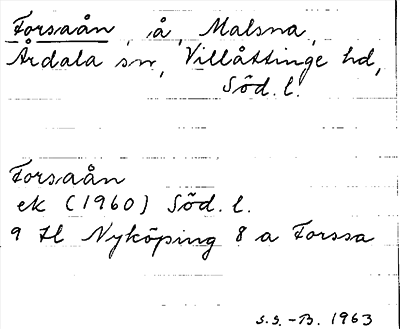 Forsaån, å, Malsna,
Årdala sn, Villåttinge hd,
Söd. l.
Forsaån
ek (1960) Söd. l.
9 H Nyköping 8 a Forssa
S.S.-B. 1963